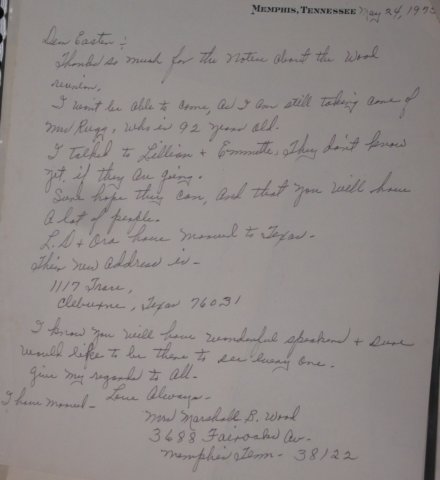 MEMPHIS, TENNESSEE May 24, 197
Dear Easter:
Thanks so much for the Notice about the Wood
reunion.
I won't be able to come, as I am still taking care of
Mrs Rugg, who is 92 years old.
I talked to Lillian + Emmette, They don't know
yet, if they are going.
Sure hope they can, and that you will have
a lot of people.
L.D + Ora have moved to Texas -
Their new address is -
1117 Trare,
Cleburne, Texas 76031
I know you will have wonderful speakers + sure
would like to be there to see every one.
Give my regards to all -
Love Always -
I have moved -
Mrs Marshall B. Wood
3688 Fairoaks Av -
Memphis Tenn - 38122